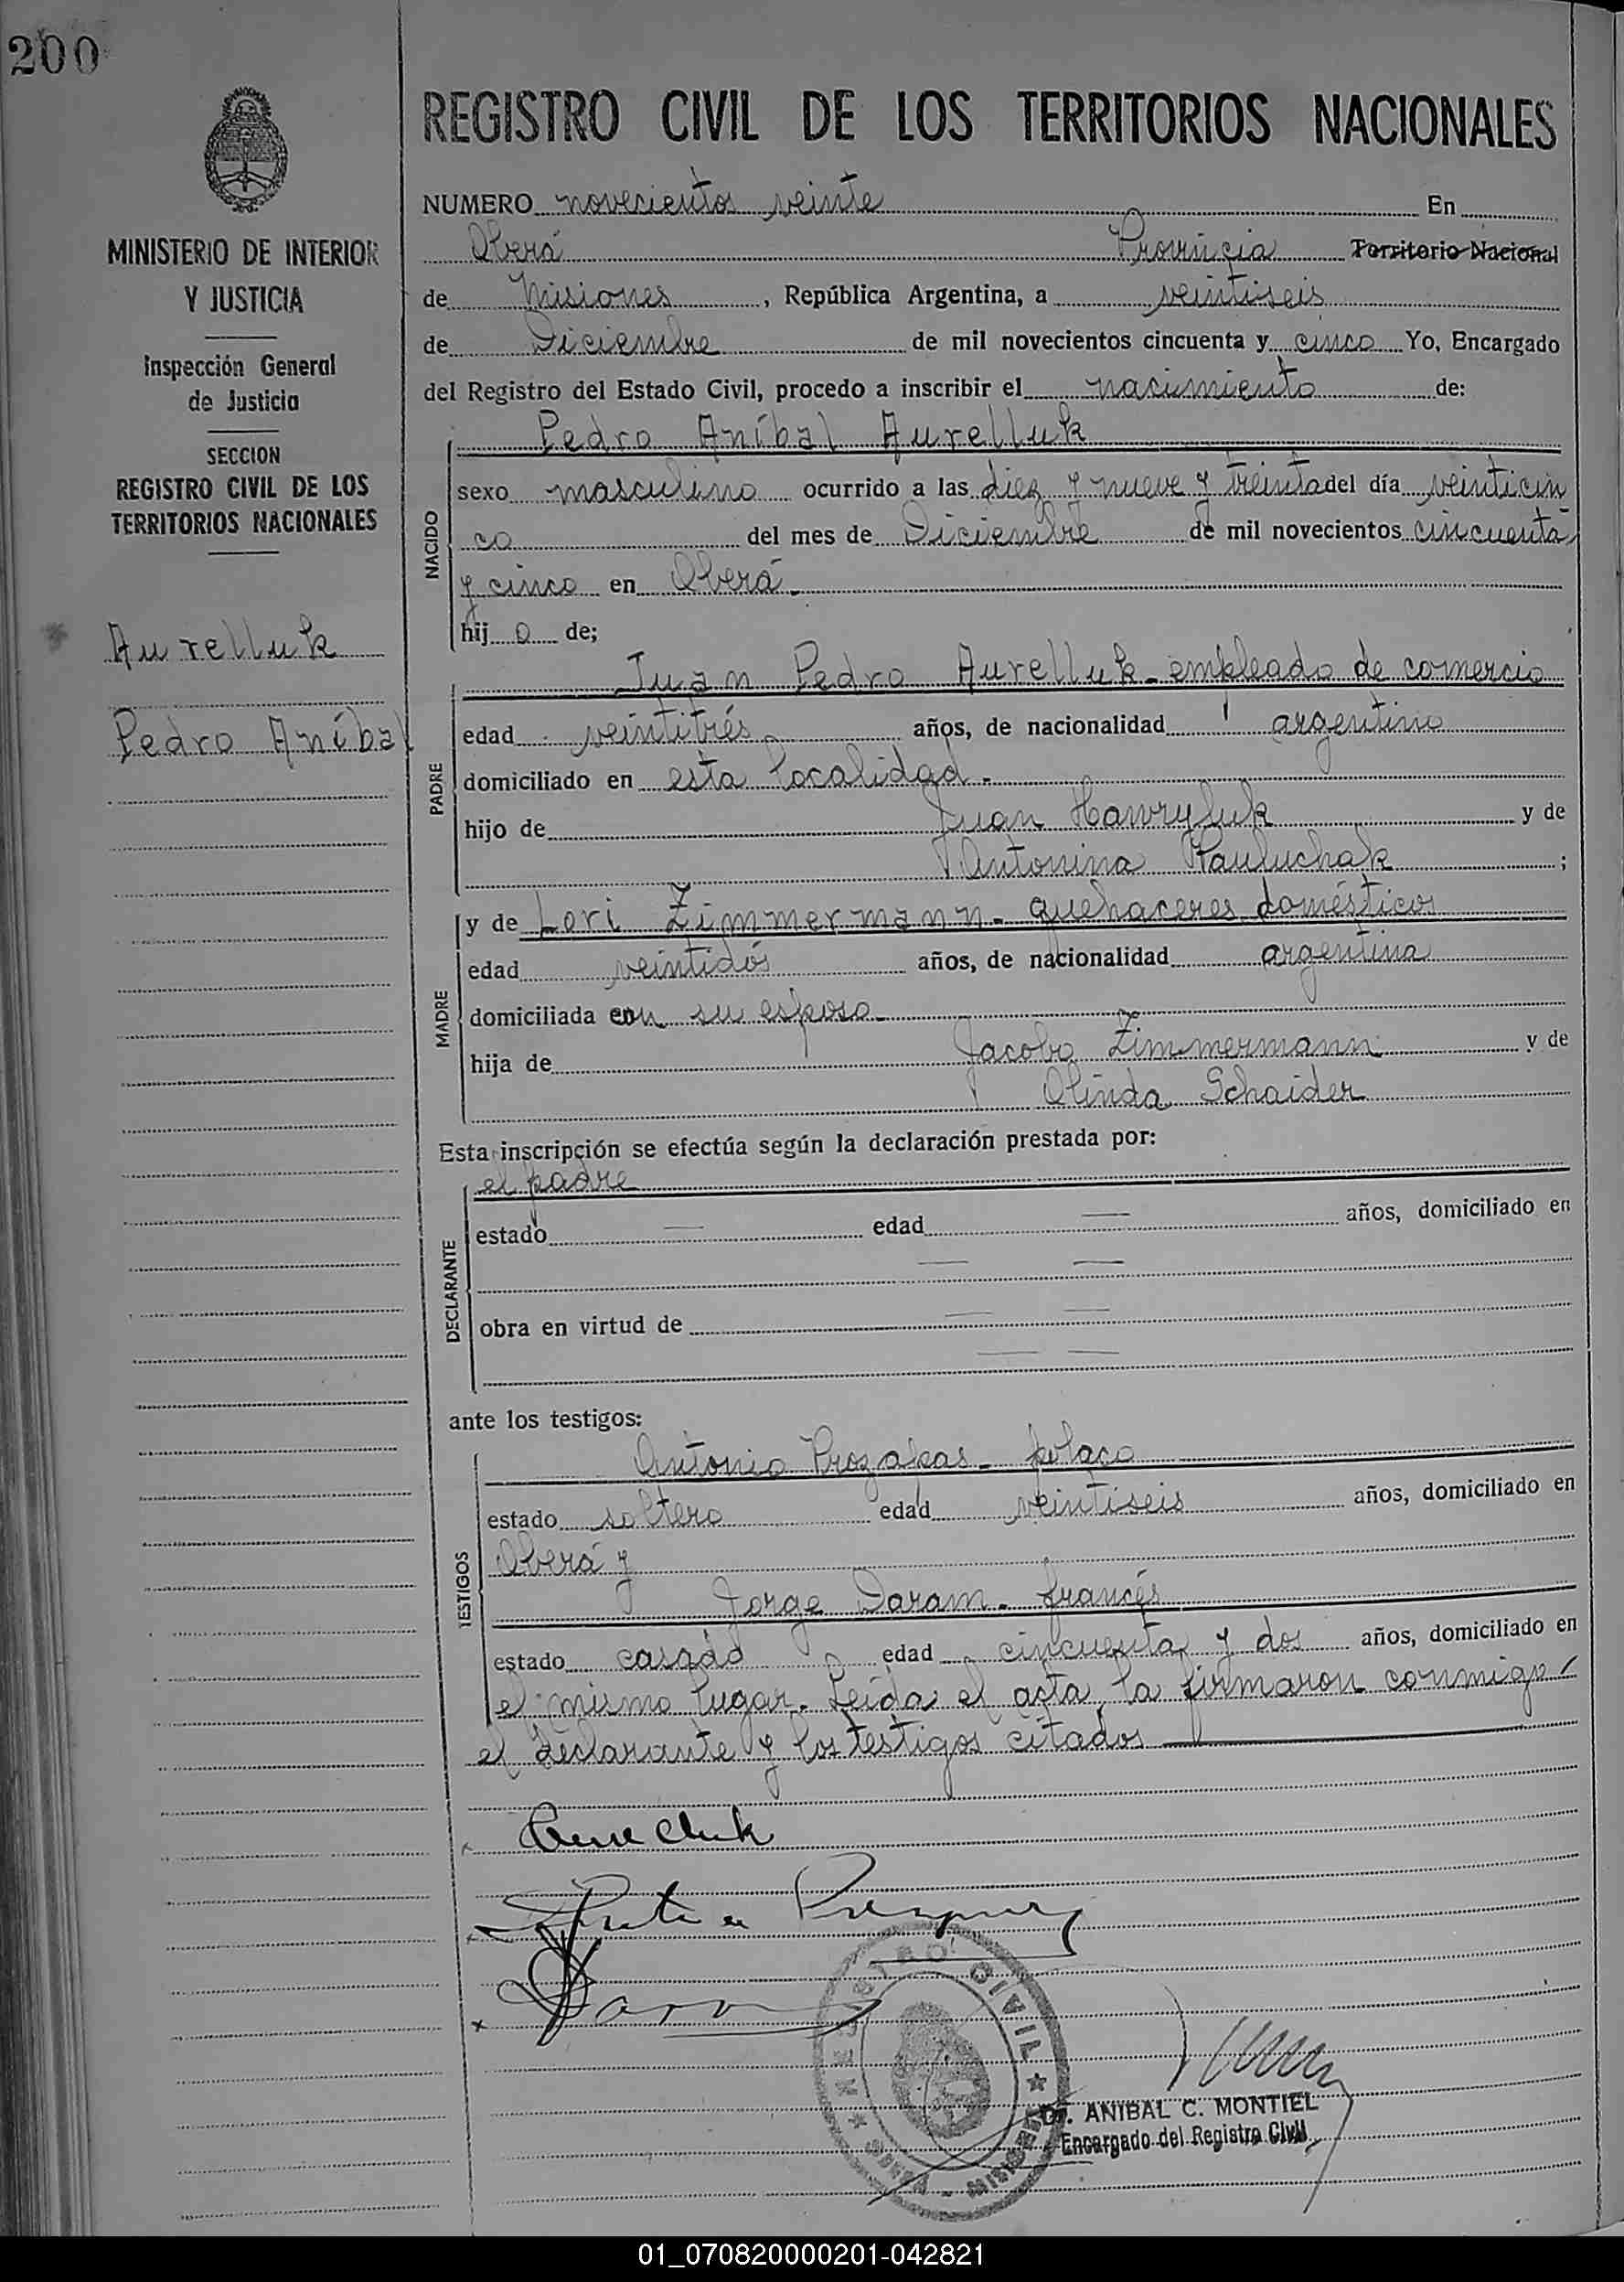 200
REGISTRO CIVIL DE LOS TERRITORIOS NACIONALES
MINISTERIO DE INTERIOR
Y JUSTICIA
Inspección General
de Justicia
SECCION
REGISTRO CIVIL DE LOS
TERRITORIOS NACIONALES
Aurelluk
Pedro Aníbal
NUMERO novecientos veinte En
Oberá Provincia Territorio Nacional
de Misiones, República Argentina, a veintiseis
de Diciembre de mil novecientos cincuenta y cinco Yo, Encargado
del Registro del Estado Civil, procedo a inscribir el nacimiento de:
NACIDO
Pedro Aníbal Aurelluk
sexo masculino ocurrido a las diez y nueve y treinta del día veinticin
co del mes de Diciembre de mil novecientos cincuenta
y cinco en Oberá.
hij o de;
PADRE
Juan Pedro Aurelluk - empleado de comercio
edad veintitrés años, de nacionalidad argentino
domiciliado en esta localidad.
hijo de Juan Hawryluk y de
Antonina Hauluchak ;
MADRE
y de Lori Zimmermann - quehaceres domésticos
edad veintidós años, de nacionalidad argentina
domiciliada con su esposo.
hija de Jacobo Zimmermann y de
Olinda Schaider
Esta inscripción se efectúa según la declaración prestada por:
DECLARANTE
el padre
estado — edad — años, domiciliado en
— —
obra en virtud de — —
— —
ante los testigos:
TESTIGOS
Antonio Prozapas - polaco
estado soltero edad veintiseis años, domiciliado en
Oberá y
Jorge Daram - francés
estado casado edad cincuenta y dos años, domiciliado en
el mismo lugar. Leída el acta, la firmaron conmigo
el declarante y los testigos citados
REGISTRO CIVIL
MISIONES
Dr. ANIBAL C. MONTIEL
Encargado del Registro Civil
01_070820000201-042821